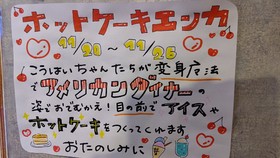 ホットケーキエンカ
11/21 ～ 11/25
こうはいちゃんたちが変身魔法
でアメリカンダイナーの
姿でおでむかえ！目の前でアイスや
ホットケーキをつくってくれます
おたのしみに